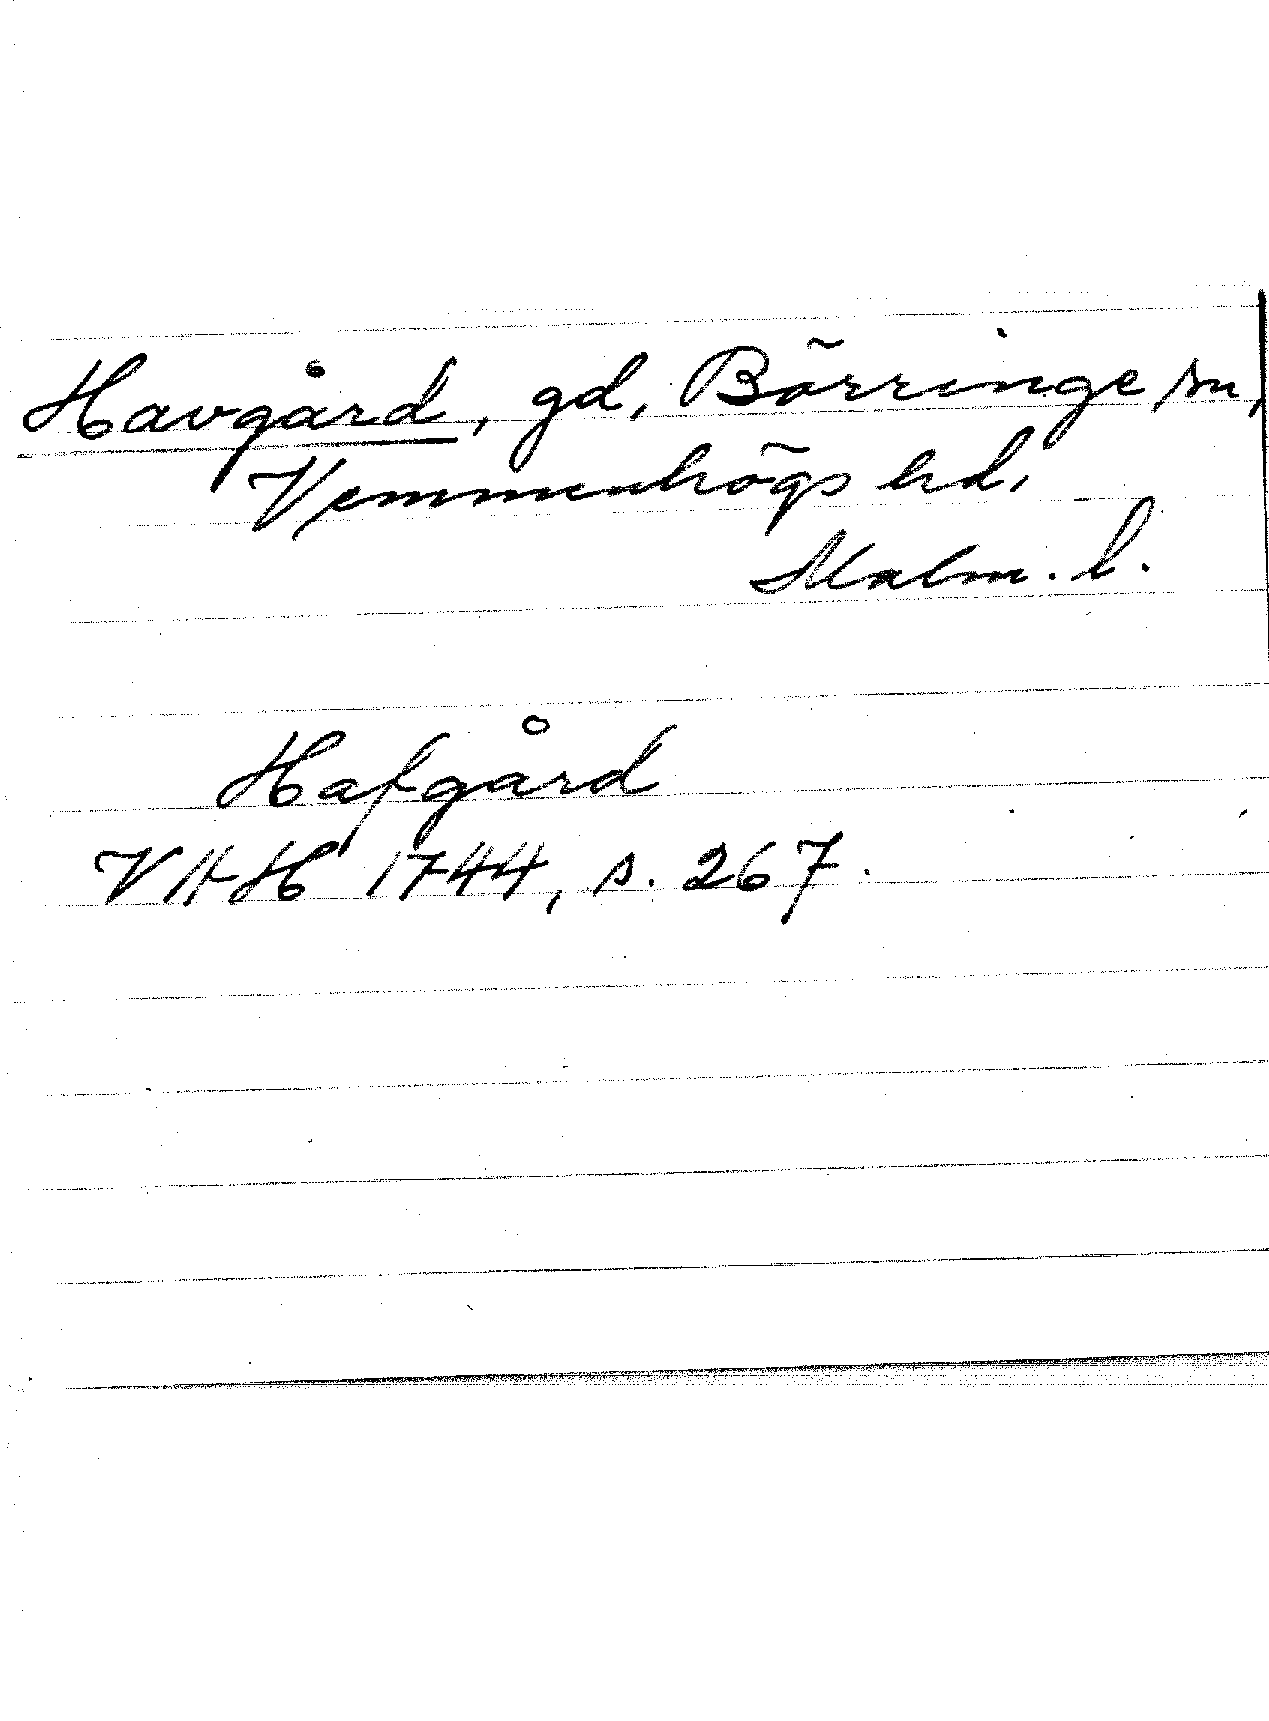 Havgård, gd, Börringe sn,
Vemmenhögs hd,
Malm. l.
Hafgård
VAH 1744, s. 267.